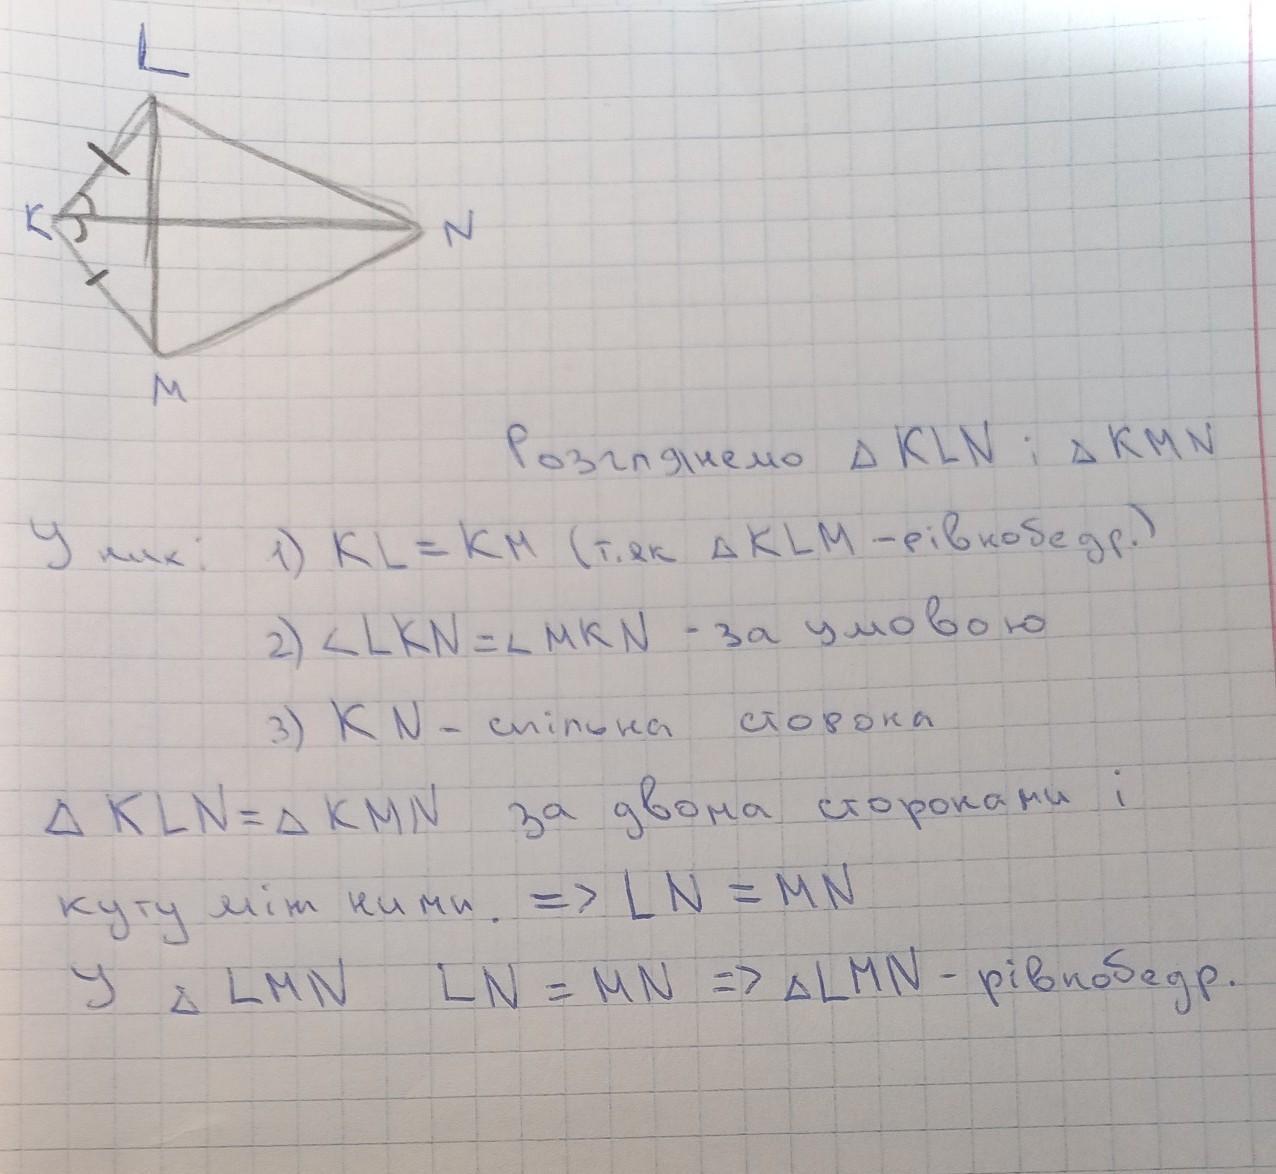 L
K
N
M
Розглянемо △ KLN і △ KMN
У них: 1) KL = KM (т.як △ KLM - рівнобедр.)
2) ∠LKN = ∠MKN - за умовою
3) KN - спільна сторона
△ KLN = △ KMN за двома сторонами і
куту між ними. => LN = MN
У △ LMN LN = MN => △LMN - рівнобедр.